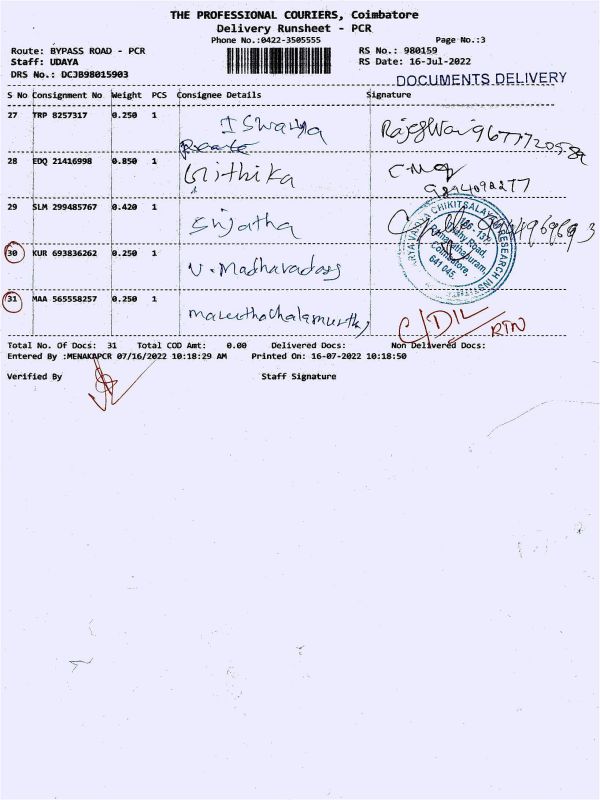 THE PROFESSIONAL COURIERS, Coimbatore
Delivery Runsheet - PCR
Phone No.:0422-3505555
Page No.:3
Route: BYPASS ROAD - PCR
RS No.: 980159
Staff: UDAYA
RS Date: 16-Jul-2022
DRS No.: DCJB98015903
DOCUMENTS DELIVERY
S No Consignment No Weight PCS Consignee Details Signature
27 TRP 8257317 0.250 1 Iswarya
28 EDQ 21416998 0.850 1 Grithika
9894092277
29 SLM 299485767 0.420 1 Sujatha
30 KUR 693836262 0.250 1 V. Madhavadoss
31 MAA 565558257 0.250 1
ARYAVAIDYA CHIKITSALAYAM RESEARCH INSTITUTE
136, 137,
Trichy Road,
Ramanathapuram,
Coimbatore,
641 045.
C/DIL
RTN
Total No. Of Docs: 31 Total COD Amt: 0.00 Delivered Docs: Non Delivered Docs:
Entered By :MENAKAPCR 07/16/2022 10:18:29 AM Printed On: 16-07-2022 10:18:50
Verified By Staff Signature